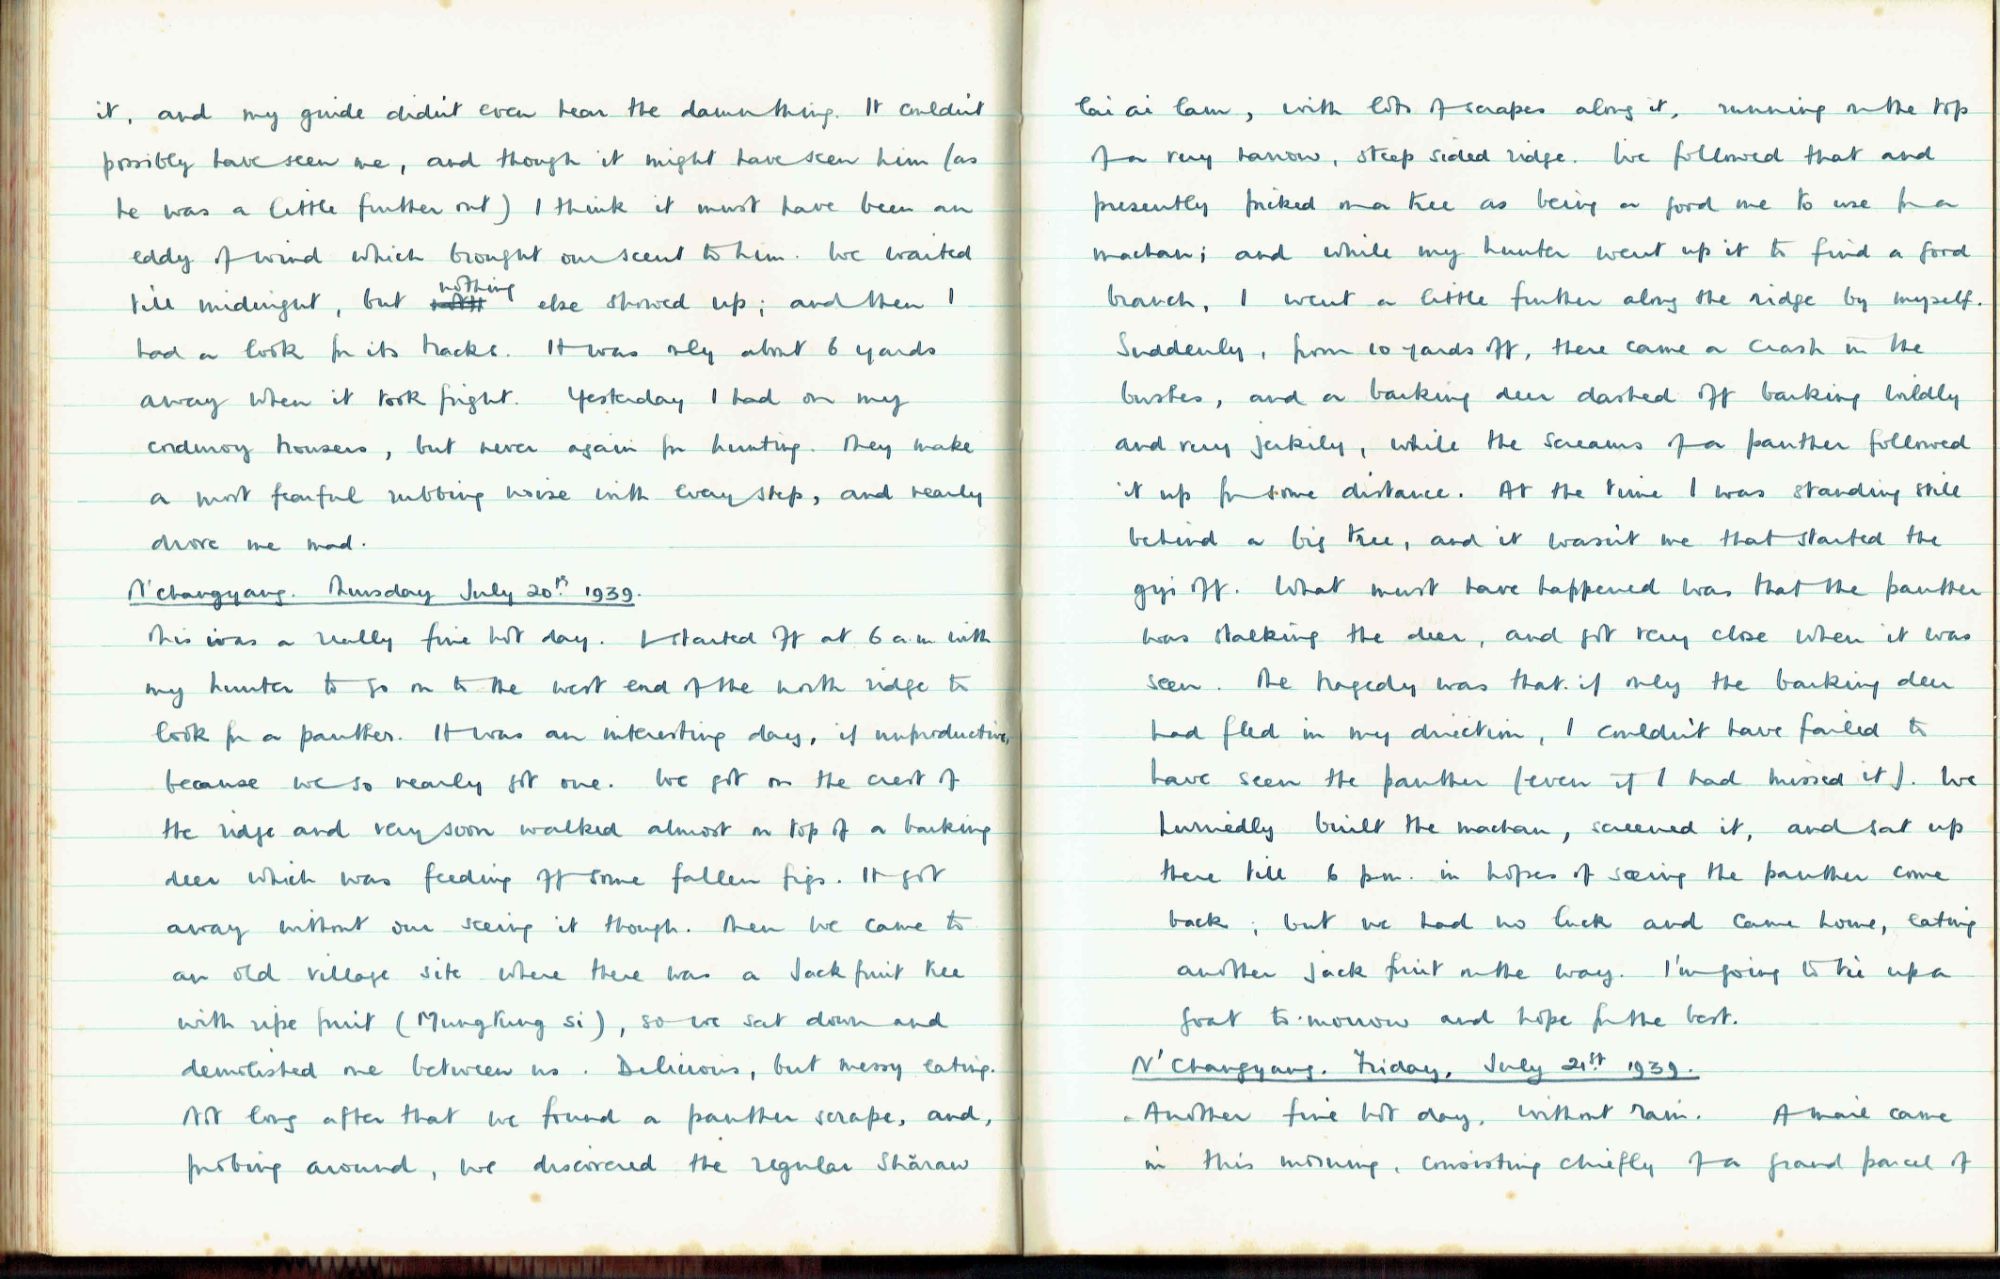 it, and my guide didn't even hear the damn thing. It couldn't
possibly have seen me, and though it might have seen him (as
he was a little further out) I think it must have been an
eddy of wind which brought our scent to him. We waited
till midnight, but nothing else showed up; and then I
had a look for its tracks. It was only about 6 yards
away when it took fright. Yesterday I had on my
corduroy trousers, but never again for hunting. They make
a most fearful rubbing noise with every step, and nearly
drove me mad.
N'Changyang. Thursday July 20th 1939.
This was a really fine hot day. I started off at 6 a.m. with
my hunter to go on to the west end of the north ridge to
look for a panther. It was an interesting day, if unproductive,
because we so nearly got one. We got on the crest of
the ridge and very soon walked almost on top of a barking
deer which was feeding off some fallen figs. It got
away without our seeing it though. Then we came to
an old village site where there was a Jack fruit tree
with ripe fruit (Mungkung si), so we sat down and
demolished one between us. Delicious, but messy eating.
Not long after that we found a panther scrape, and,
probing around, we discovered the regular Shăraw
lai ai lam, with lots of scrapes along it, running on the top
of a very narrow, steep sided ridge. We followed that and
presently pricked on a tree as being a good one to use for a
machan; and while my hunter went up it to find a good
branch, I went a little further along the ridge by myself.
Suddenly, from 10 yards off, there came a crash in the
bushes, and a barking deer dashed off barking wildly
and very jerkily, while the screams of a panther followed
it up for some distance. At the time I was standing still
behind a big tree, and it wasn't me that started the
gyi off. What must have happened was that the panther
was stalking the deer, and got very close when it was
seen. The tragedy was that if only the barking deer
had fled in my direction, I couldn't have failed to
have seen the panther (even if I had missed it). We
hurriedly built the machan, screened it, and sat up
there till 6 p.m. in hopes of seeing the panther come
back; but we had no luck and came home, eating
another jack fruit on the way. I'm going to tie up a
goat to-morrow and hope for the best.
N'Changyang. Friday, July 21st 1939.
Another fine hot day, without rain. A mail came
in this morning, consisting chiefly of a grand parcel of